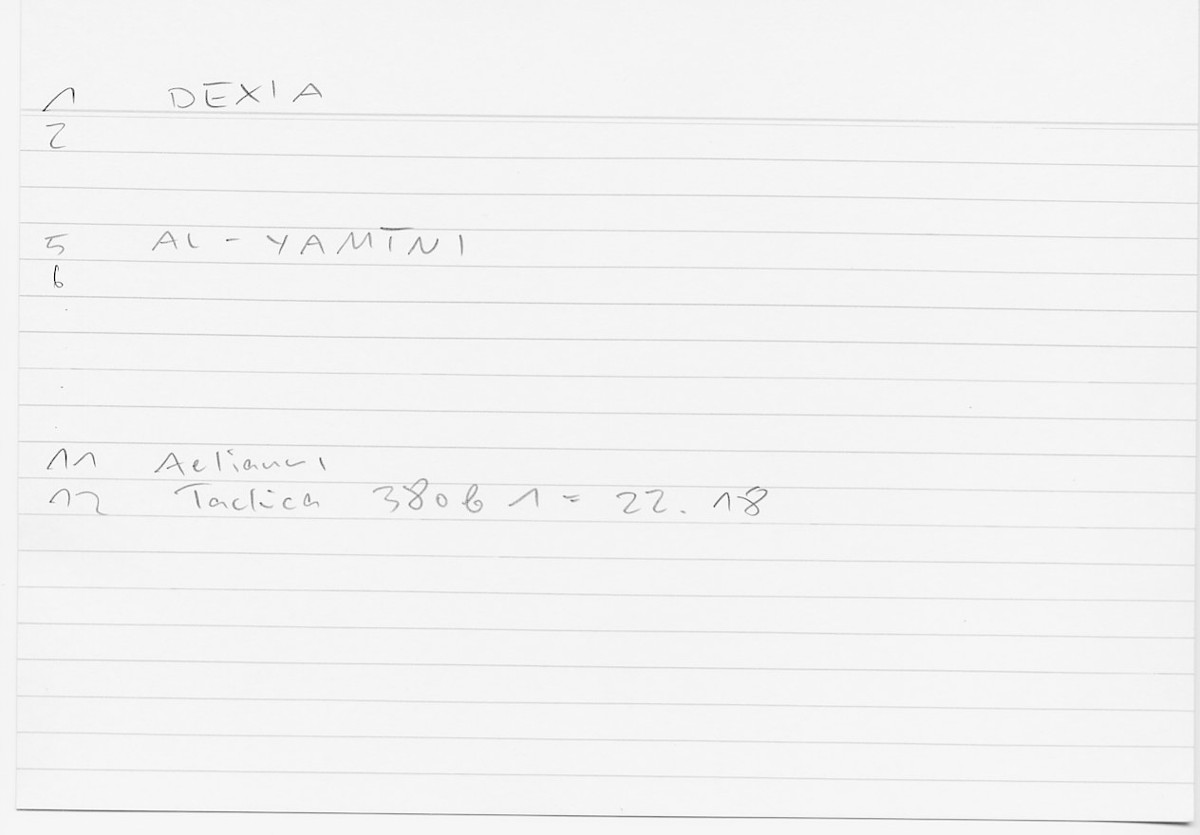 1 DEXIA
2
5 AL-YAMĪNI
6
11 Aeliani
12 Tactica 380b 1 = 22.18